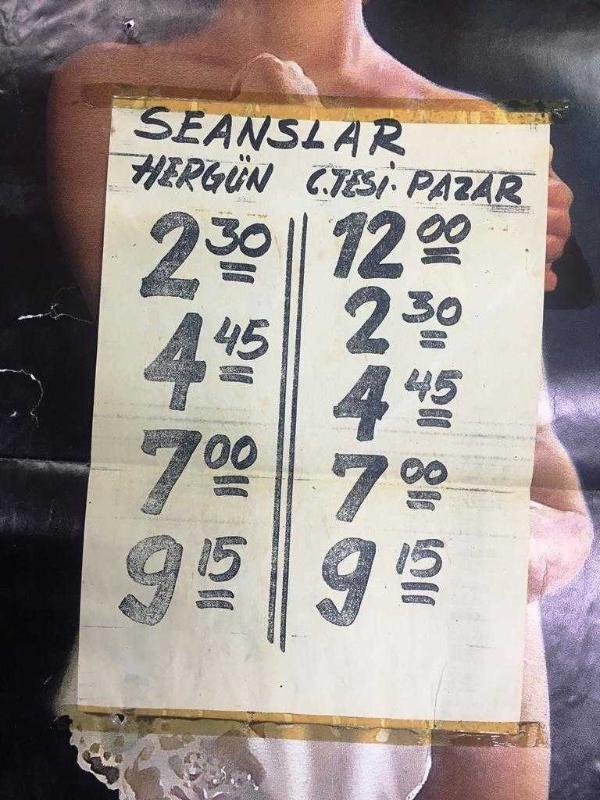 SEANSLAR
HERGÜN C.TESİ. PAZAR
2 30 12 00
4 45 2 30
7 00 4 45
9 15 7 00
9 15